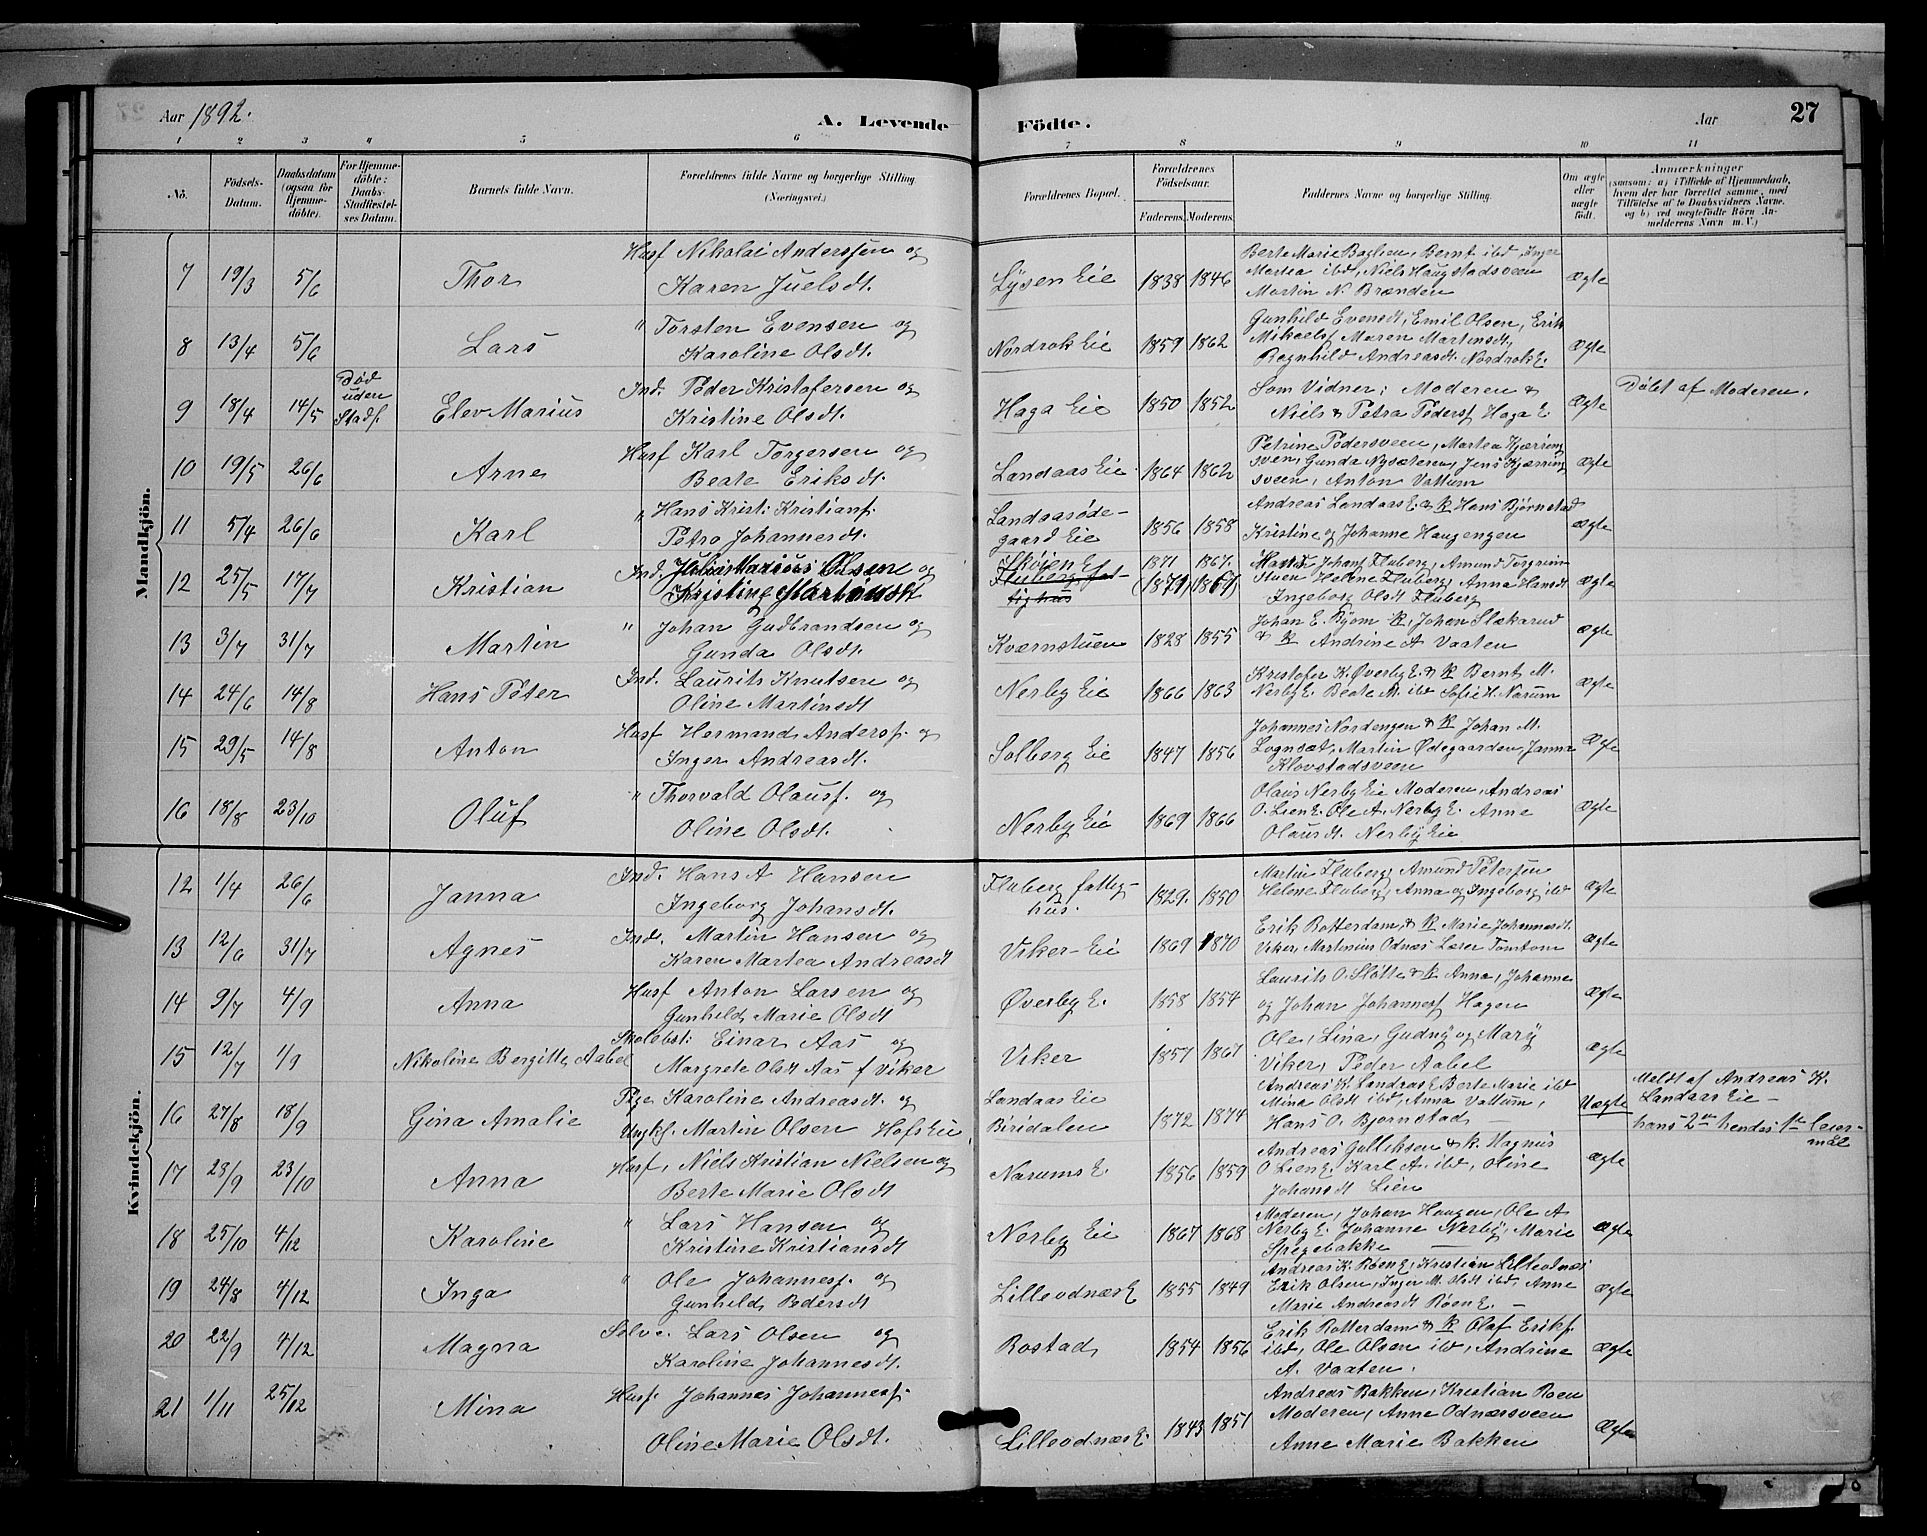 Aar 1892.
A. Levende Födte.
Aar
27
1 2 3 4 5 6 7 8 9 10 11
No.
Födsels-Datum.
Daabsdatum (ogsaa for Hjemmedöbte).
For Hjemmedöbte: Daabs-Stadfæstelses Datum.
Barnets fulde Navn.
Forældrenes fulde Navne og borgerlige Stilling.
(Næringsvei.)
Forældrenes Bopæl.
Forældrenes Födselsaar.
Faderens. Moderens.
Faddernes Navne og borgerlige Stilling.
Om ægte eller uægte födt.
Anmærkninger
(saasom: a) i Tilfælde af Hjemmedaab, hvem der har forrettet samme, med Tilföielse af to Daabsvidners Navne, og b) ved uægtefödte Börn Anmelderens Navn m. V.)
Mandkjön.
7 19/3 5/6 Thor
Husf Nikolai Anderssen og
Karen Juelsdt.
Lysen Eie 1838 1846
Berte Marie Baglien, Bernt ibd, Inger
Martea ibd, Niels Haugstadsveen
Martin N. Brænden
Ægte
8 13/4 5/6 Lars
" Torsten Evensen og
Karoline Olsdt.
Nordrok Eie 1859 1862
Gunhild Evensdt, Emil Olsen, Erik
Mikaelsf Maren Martinsdt,
Ragnhild Andreasdt. Nordrok E.
Ægte
9 18/4 14/5 Død uden Stadf. Elev Marius
Ind. Peder Kristofersen og
Kristine Olsdt.
Haga Eie 1850 1852
Som Vidner: Moderen &
Niels & Petra Pedersf Haga E.
Ægte
Döbt af Moderen.
10 19/5 26/6 Arne
Husf Karl Torgersen og
Beate Eriksdt.
Landaas Eie 1864 1862
Petrine Pedersveen, Martea Kjærring
sveen, Gunda Nysæteren, Jens Kjærring
sveen, Anton Vattum
Ægte
11 5/4 26/6 Karl
" Hans Krist. Kristiansf.
Petra Johannesdt.
Landaasøde-
gaard Eie 1856 1858
Andreas Landaas E. & K Hans Bjørnstad
Kristine og Johanne Haugengen
Ægte
12 25/5 17/7 Kristian
Ind. Julius Marius Olsen og
Kristine Martinsdt
Skøien E 1871 1867.
Fluberg fat-
tighus (1871) (1867)
Johans Fluberg, Amund Torgrim
stuen Helene Fluberg, Anna Hansdt
Ingeborg Olsdt Fluberg
Ægte
13 3/7 31/7 Martin
" Johan Gudbrandsen og
Gunda Olsdt.
Kværnstuen 1828 1855
Johan E. Byom K, Johan Slækarud
& K Andrine A Vaaten
Ægte
14 24/6 14/8 Hans Peter
Ind. Laurits Knutsen og
Oline Martinsdt
Nerby Eie 1866 1863
Kristofer K. Øverby E. & K Bernt M.
Nerby E. Beate M. ibd Sofie H. Narum
Ægte
15 29/5 14/8 Anton
Husf Hermand Andersf. og
Inger Andreasdt.
Solberg Eie 1847 1856
Johannes Nordengen & K Johan M.
Lognsæt, Martin Ødegaarden, Janna
Klovstadsveen
Ægte
16 18/8 23/10 Oluf
" Thorvald Olausf. og
Oline Olsdt.
Nerby Eie 1869 1866
Olaus Nerby Eie Moderen, Andreas
O. Lien E. Ole A. Nerby E. Anne
Olausdt. Nerby Eie
Ægte
Kvindekjön.
12 1/4 26/6 Janna
Ind. Hans A Hansen
Ingeborg Johansdt.
Fluberg fattig-
hus. 1829. 1850
Martin Fluberg, Amund Petersen
Helene Fluberg, Anna og Ingeborg ibd
Ægte
13 12/6 31/7 Agnes
Ind. Martin Hansen og
Karen Martea Andreasdt
Viker-Eie 1869 1870
Erik Rotterdam, & K Marie Johannesdt.
Viker, Martinius Odnæs Lærer Tomtom
Ægte
14 9/7 4/9 Anna
Husf Anton Larsen og
Gunhild Marie Olsdt
Øverby E. 1858 1854
Laurits O. Slåtte & K Anna, Johanne
og Johan Johannesf Hagen
Ægte
15 12/7 1/9 Nikoline Bergitte Aabel
Skolebst: Einar Aas og
Margrete Olsdt Aas f Viker
Viker 1857 1867
Ole, Lina, Gudny og Mary
Viker, Peder Aabel
Ægte
16 27/8 18/9 Gina Amalie
Pige Karoline Andreasdt. og
Ungkf. Martin Olsen Hofs Eie,
Landaas Eie
Biridalen 1872 1874
Andreas K. Landaas E Berte Marie ibd
Mina Olsdt ibd, Anna Vattum,
Hans O. Bjornstad
Uægte
Meldt af Andreas K.
Landaas Eie -
hans 2den hendes 1ste leier-
mål
17 23/9 23/10 Anna
Husf, Niels Kristian Nielsen og
Berte Marie Olsdt
Narums E. 1856 1859
Andreas Gulliksen & K. Magnus
O Lien E, Karl A. ibd, Oline
Johansdt Lien
Ægte
18 25/10 4/12 Karoline
" Lars Hansen og
Kristine Kristiansdt
Nerby Eie 1867 1868
Moderen, Johan Haugen, Ole A
Nerby E. Johanne Nerby, Marie
Spegebakke
Ægte
19 24/8 4/12 Inga
" Ole Johannesf. og
Gunhild Pedersdt
Lilleodnæs E 1855 1849
Andreas K. Røen E, Kristian Lilleodnæs
Erik Olsen, Inger M. Olsdt ibd, Anne
Marie Andreasdt Røen E. -
Ægte
20 22/9 4/12 Magna
Selve. Lars Olsen og
Karoline Johannesdt.
Rostad 1854 1856
Erik Rotterdam & K Olaf Eriksf.
ibd, Ole Olsen ibd, Andrine
A. Vaaten.
Ægte
21 1/11 25/12 Mina
Husf. Johannes Johannesf.
Oline Marie Olsdt.
Lilleodnæs E. 1843 1851
Andreas Bakken, Kristian Roen
Moderen, Anne Odnæsveen
Anne Marie Bakken
Ægte